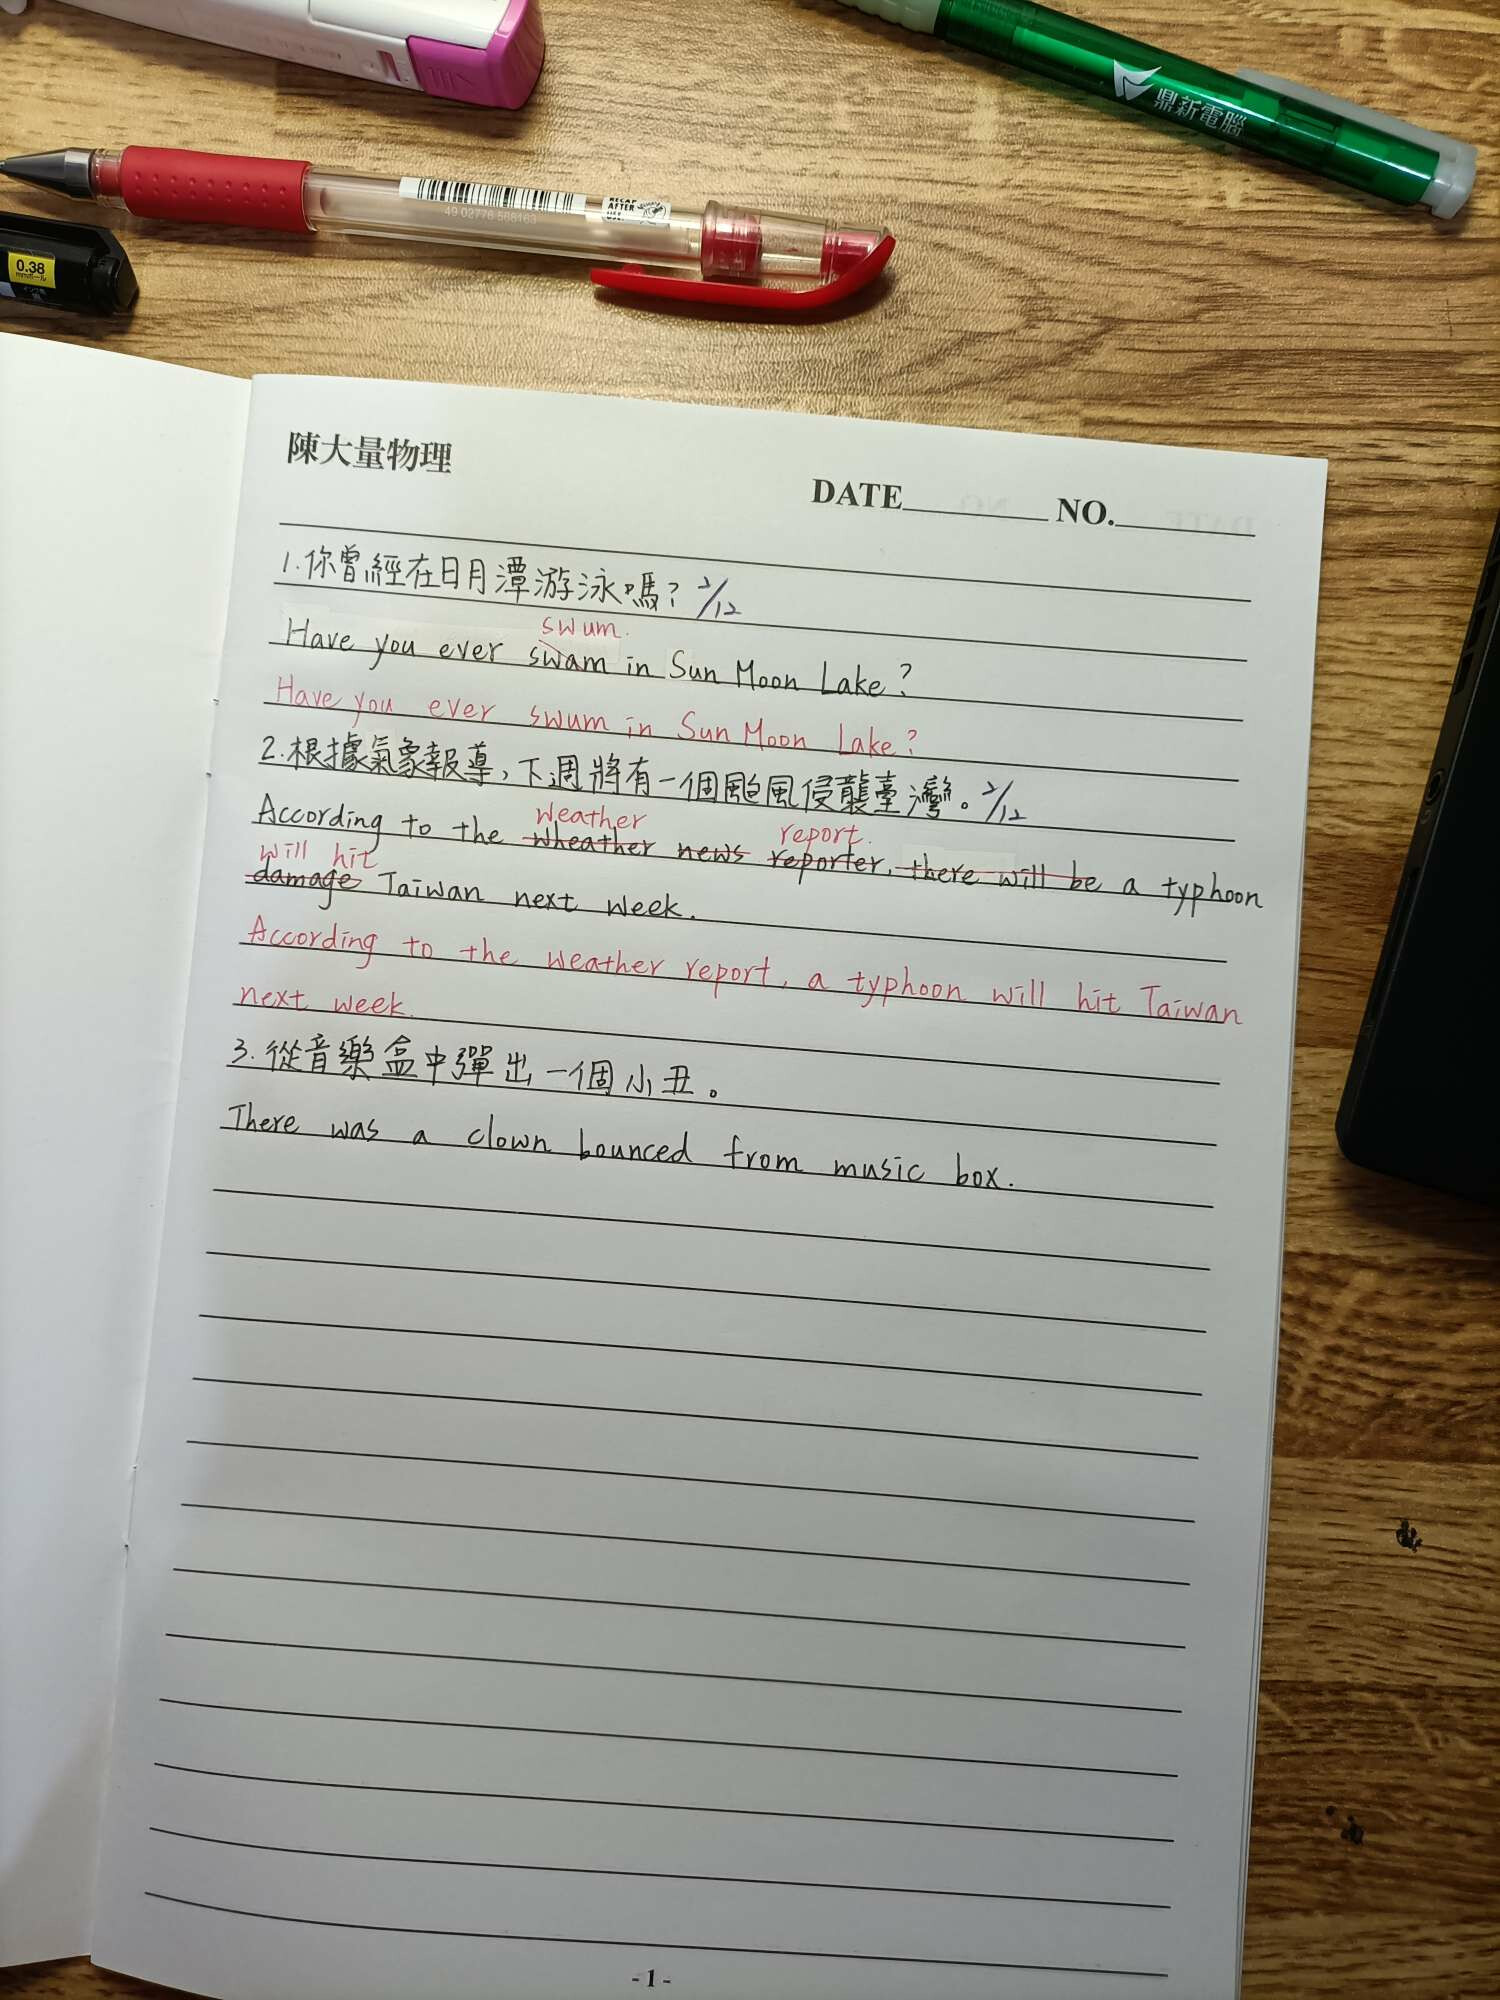 鼎新電腦
RECAP
AFTER
49 02778 568163
0.38
陳大量物理
DATE NO.
1.你曾經在日月潭游泳嗎? 2/12
swum.
Have you ever swam in Sun Moon Lake?
Have you ever swum in Sun Moon Lake?
2.根據氣象報導,下週將有一個颱風侵襲臺灣。2/12
weather report.
According to the wheather news reporter, there will be a typhoon
will hit
damage Taiwan next week.
According to the weather report, a typhoon will hit Taiwan
next week.
3.從音樂盒中彈出一個小丑。
There was a clown bounced from music box.
- 1 -